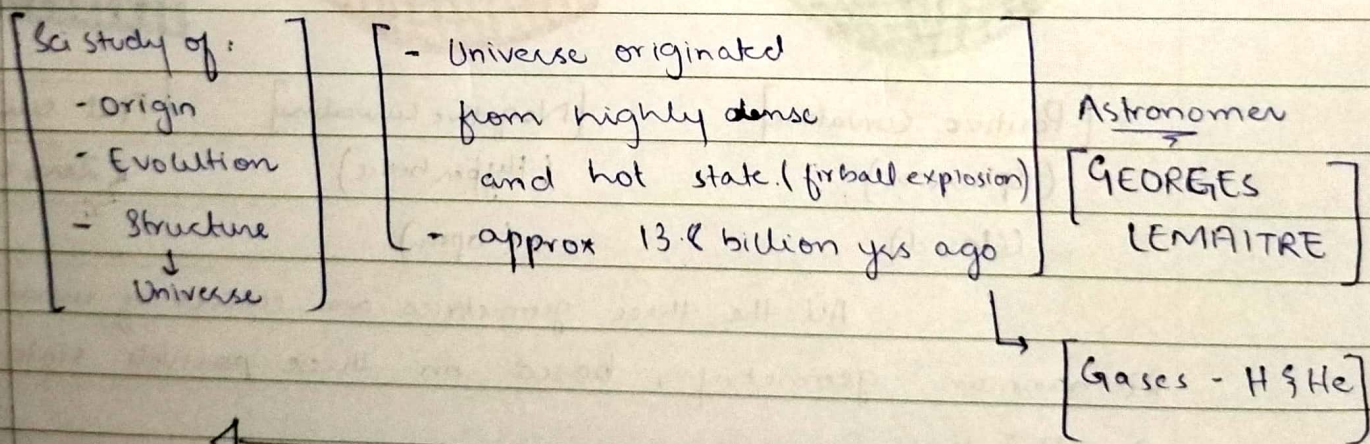 Sci study of:
- Origin
- Evolution
- Structure
↓
Universe
- Universe originated
from highly dense
and hot state. (firball explosion)
- approx 13.8 billion yrs ago
Astronomer
GEORGES
LEMAITRE
Gases - H & He